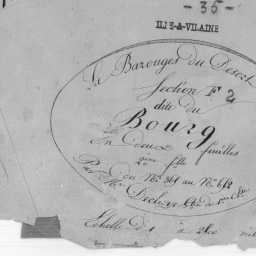 - 35 -
ILLE-&-VILAINE
La Bazouges du Desert
Section F 2
dite du
Bourg
En deux feuilles
2e flle
Du No. 369 au No. 612
Par Mr.
Echelle d 1 à 2500